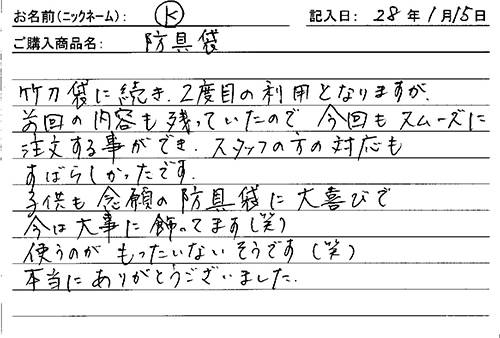 お名前(ニックネーム): Ⓚ 記入日: 28年1月15日
ご購入商品名: 防具袋
竹刀袋に続き、2度目の利用となりますが、
前回の内容も残っていたので、今回もスムーズに
注文する事ができ、スタッフの方の対応も
すばらしかったです。
子供も念願の防具袋に大喜びで
今は大事に飾ってます(笑)
使うのがもったいないそうです(笑)
本当にありがとうございました。